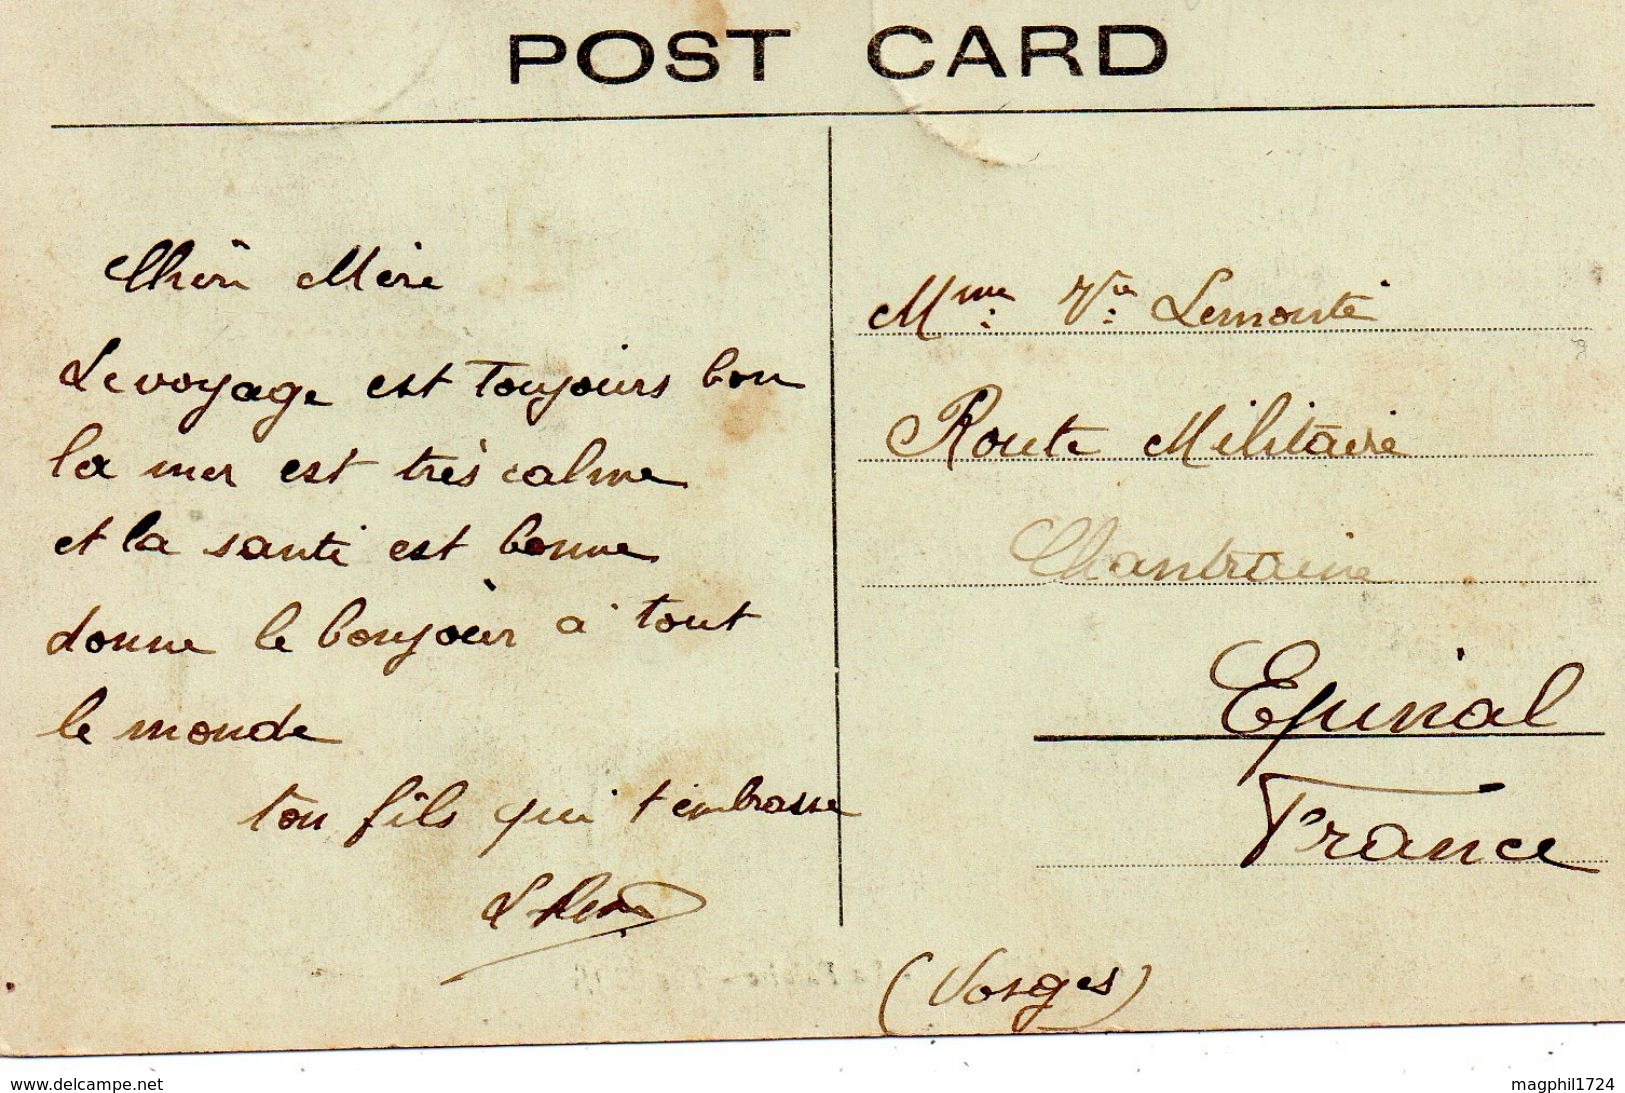 POST CARD
Chère Mère
Le voyage est toujours bon
la mer est très calme
et la santé est bonne
donne le bonjour à tout
le monde
ton fils qui t'embrasse
Mme: Vve: Lemonté
Route Militaire
Chantraine
Epinal
France
(Vosges)
www.delcampe.net
magphil1724